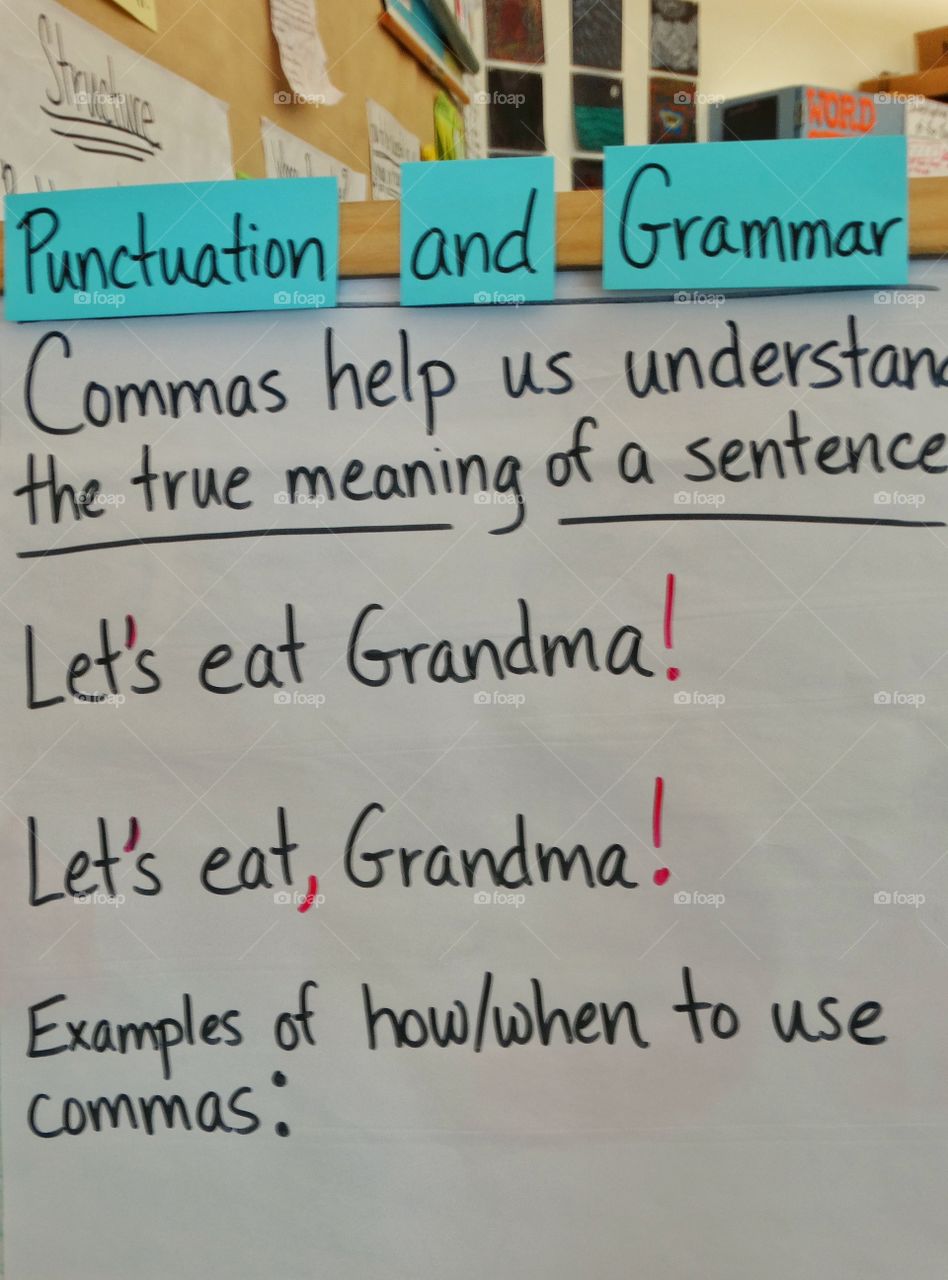 Structure
WORD
Punctuation and Grammar
Commas help us understand
the true meaning of a sentence
Let's eat Grandma!
Let's eat, Grandma!
Examples of how/when to use
commas: